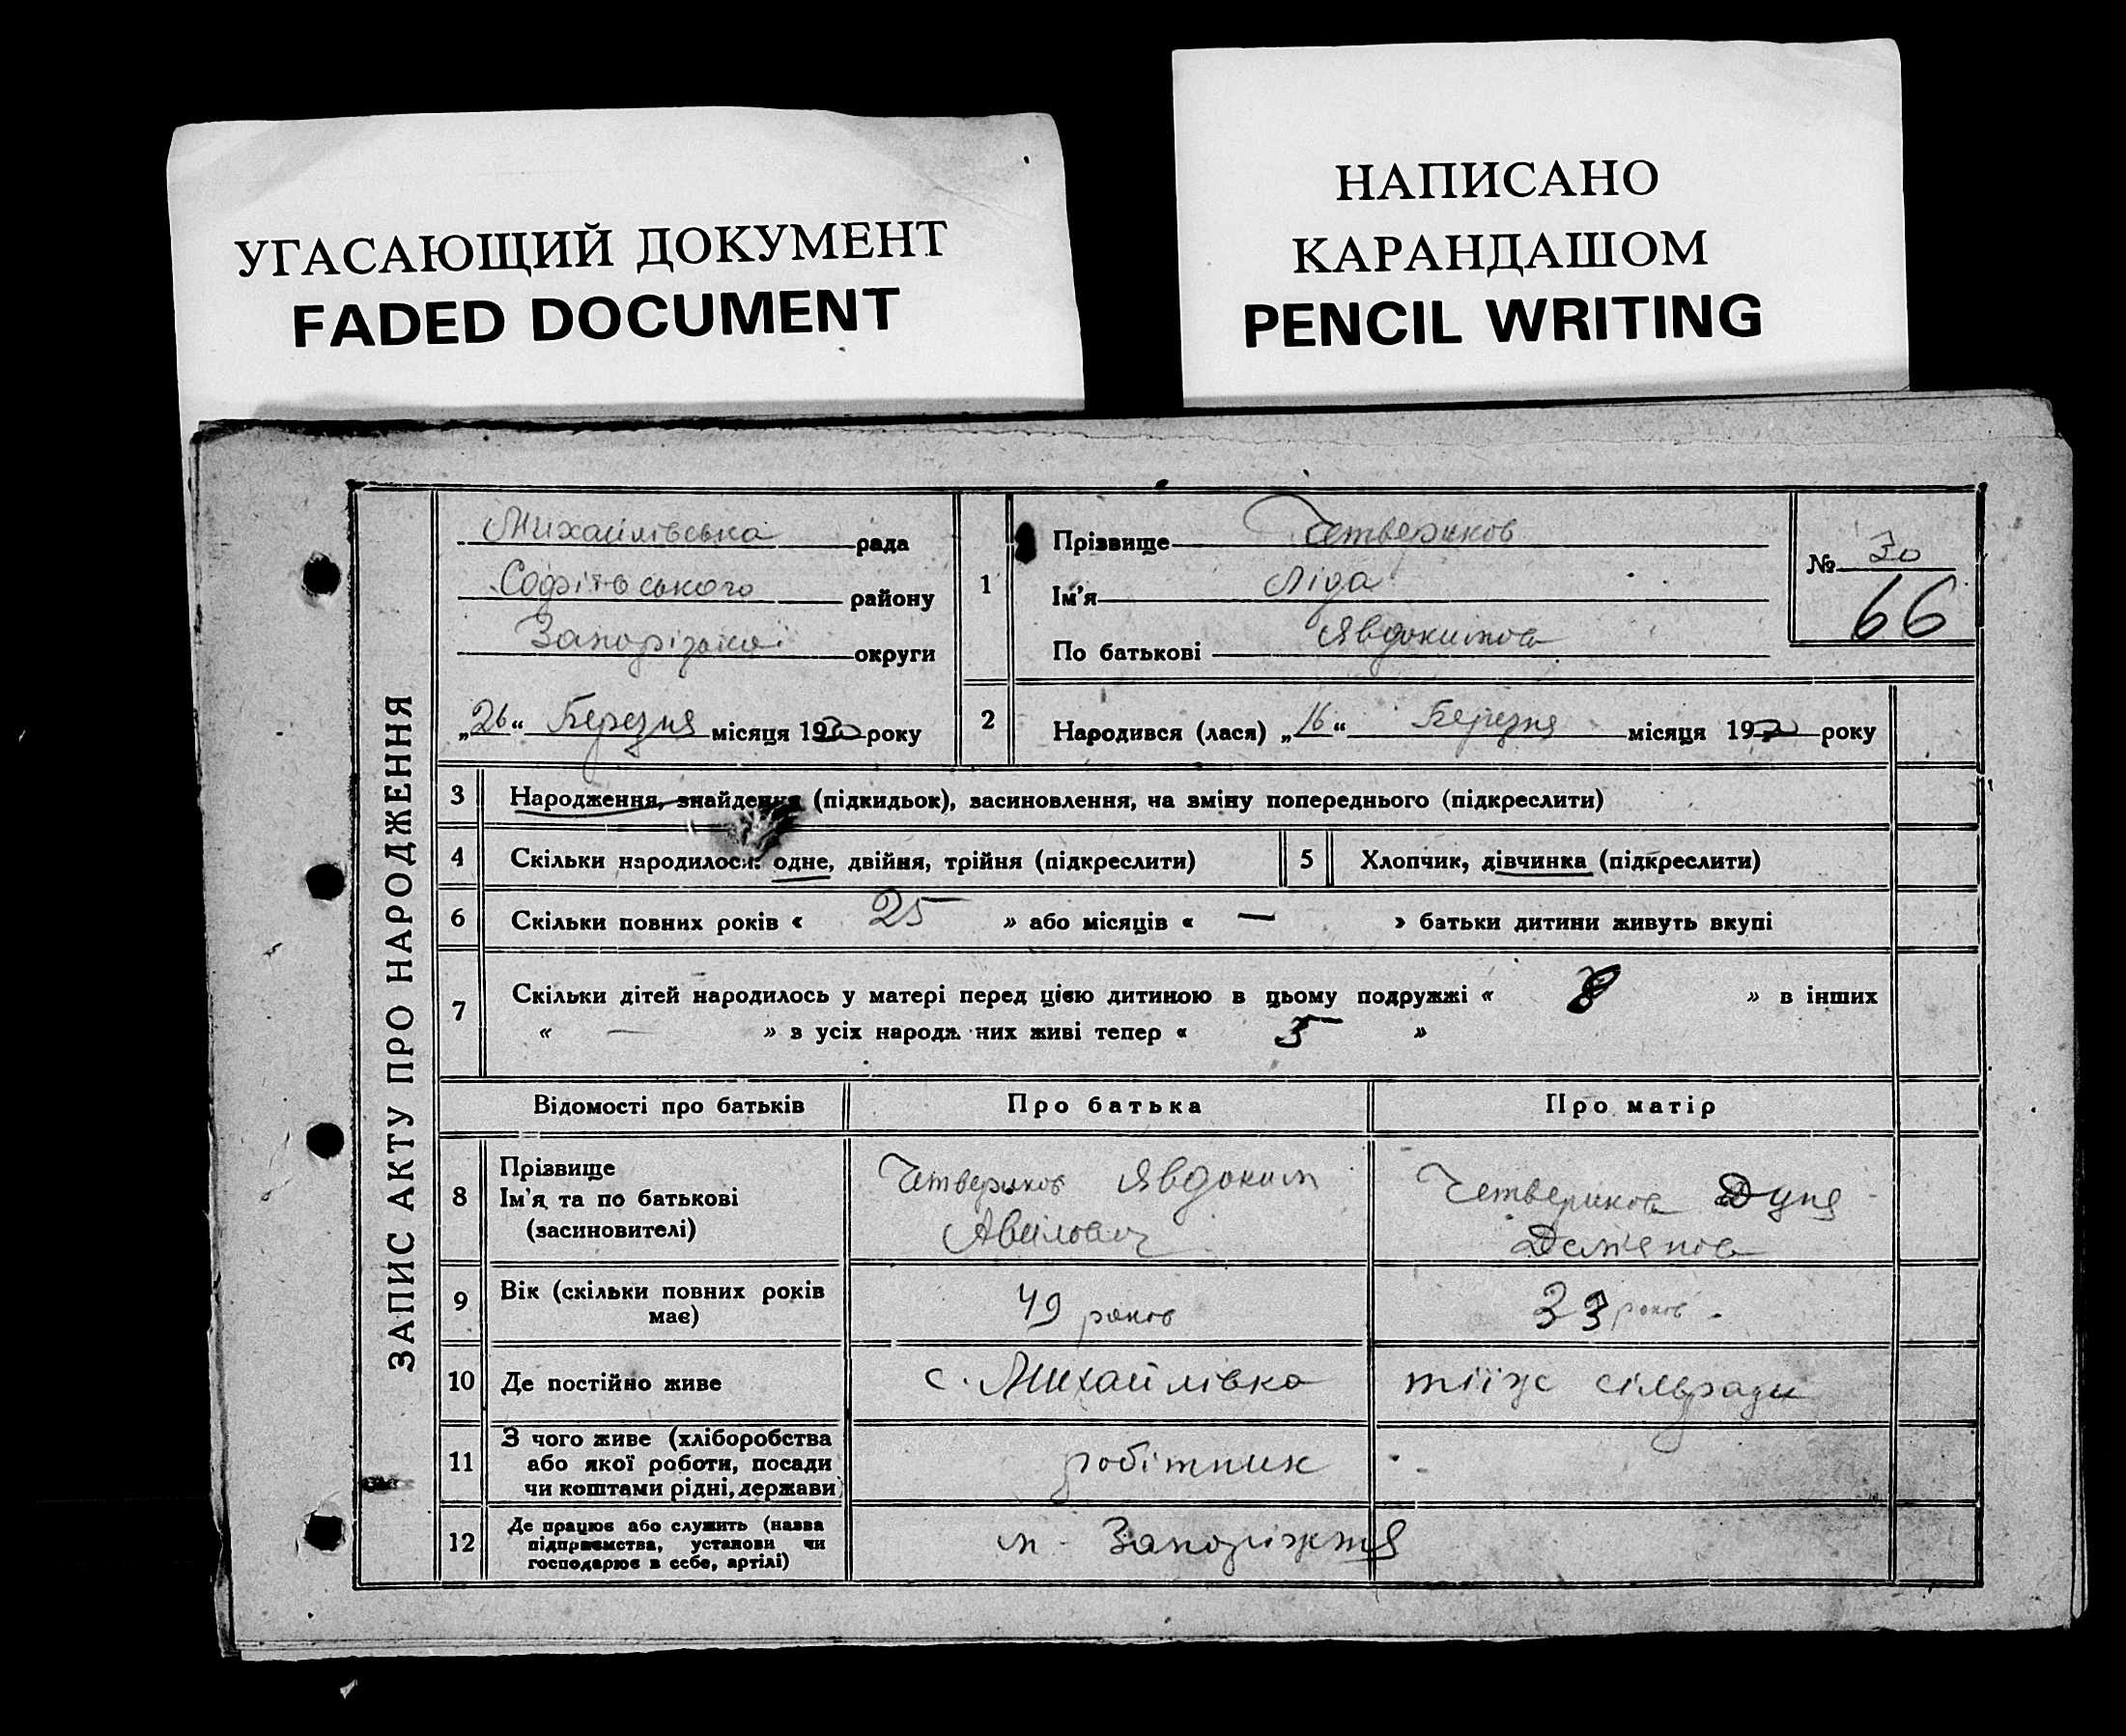 УГАСАЮЩИЙ ДОКУМЕНТ
FADED DOCUMENT
НАПИСАНО
КАРАНДАШОМ
PENCIL WRITING
ЗАПИС АКТУ ПРО НАРОДЖЕННЯ
Михайлівська рада
району
Запорізької округи
„26“ Березня місяця 1930 року
1
Прізвище Четвериков
Ім'я Ліда
По батькові Явдокимов
№ 30
66
2 Народився (лася) „16“ Березня місяця 19 року
3 Народження, знайдення (підкидьок), засиновлення, на зміну попереднього (підкреслити)
4 Скільки народилося: одне, двійня, трійня (підкреслити)
5 Хлопчик, дівчинка (підкреслити)
6 Скільки повних років « 25 » або місяців « — » батьки дитини живуть вкупі
7 Скільки дітей народилось у матері перед цією дитиною в цьому подружжі « 8 » в інших
« — » в усіх народж. них живі тепер « 5 »
Відомості про батьків Про батька Про матір
8 Прізвище
Ім'я та по батькові
(засиновителі)
Четвериков Явдоким
Авилович
Четверикова Дуня
9 Вік (скільки повних років
має)
49 роков
33 роков
10 Де постійно живе
с. Михайлівка
тііж сільради
11 З чого живе (хліборобства
або якої роботи, посади
чи коштами рідні, держави)
робітник
12 Де працює або служить (назва
підприємства, установи чи
господарює в себе, артілі)
м. Запоріжтя